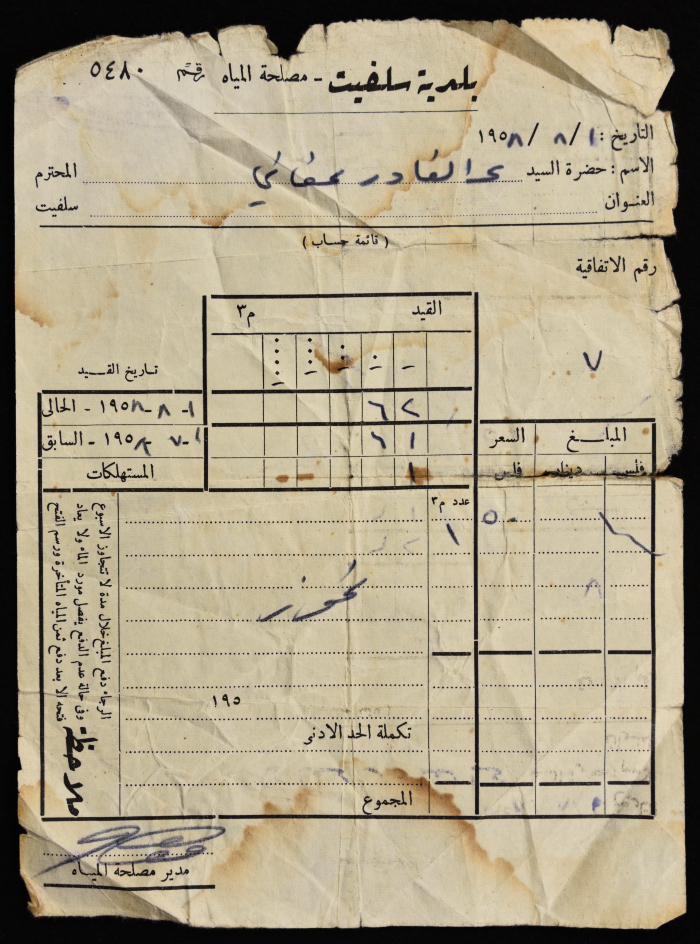 بلدية سلفيت - مصلحة المياه رقم ٥٤٨٠
التاريخ : ١ / ٨ / ١٩٥٨
الاسم : حضرة السيد عبد القادر المحترم
العنوان سلفيت
( قائمة حساب )
رقم الاتفاقية
٧
القيد م٣
تاريخ القيد
١ - ٨ - ١٩٥٨ - الحالى ٦٢
١ - ٧ - ١٩٥٨ - السابق ٦١
المستهلكات ١
المبالغ السعر
فلس دينار فلس
عدد م٣
١ ٥٠
١٩٥
تكملة الحد الادنى
المجموع
ملاحظة
الرجاء دفع المبلغ خلال مدة لا تتجاوز الاسبوع
وفى حالة عدم الدفع يفصل مورد الماء ولا يعاد
فتحه الا بعد دفع ثمن المياه المتأخرة ورسم الفتح
مدير مصلحة المياه